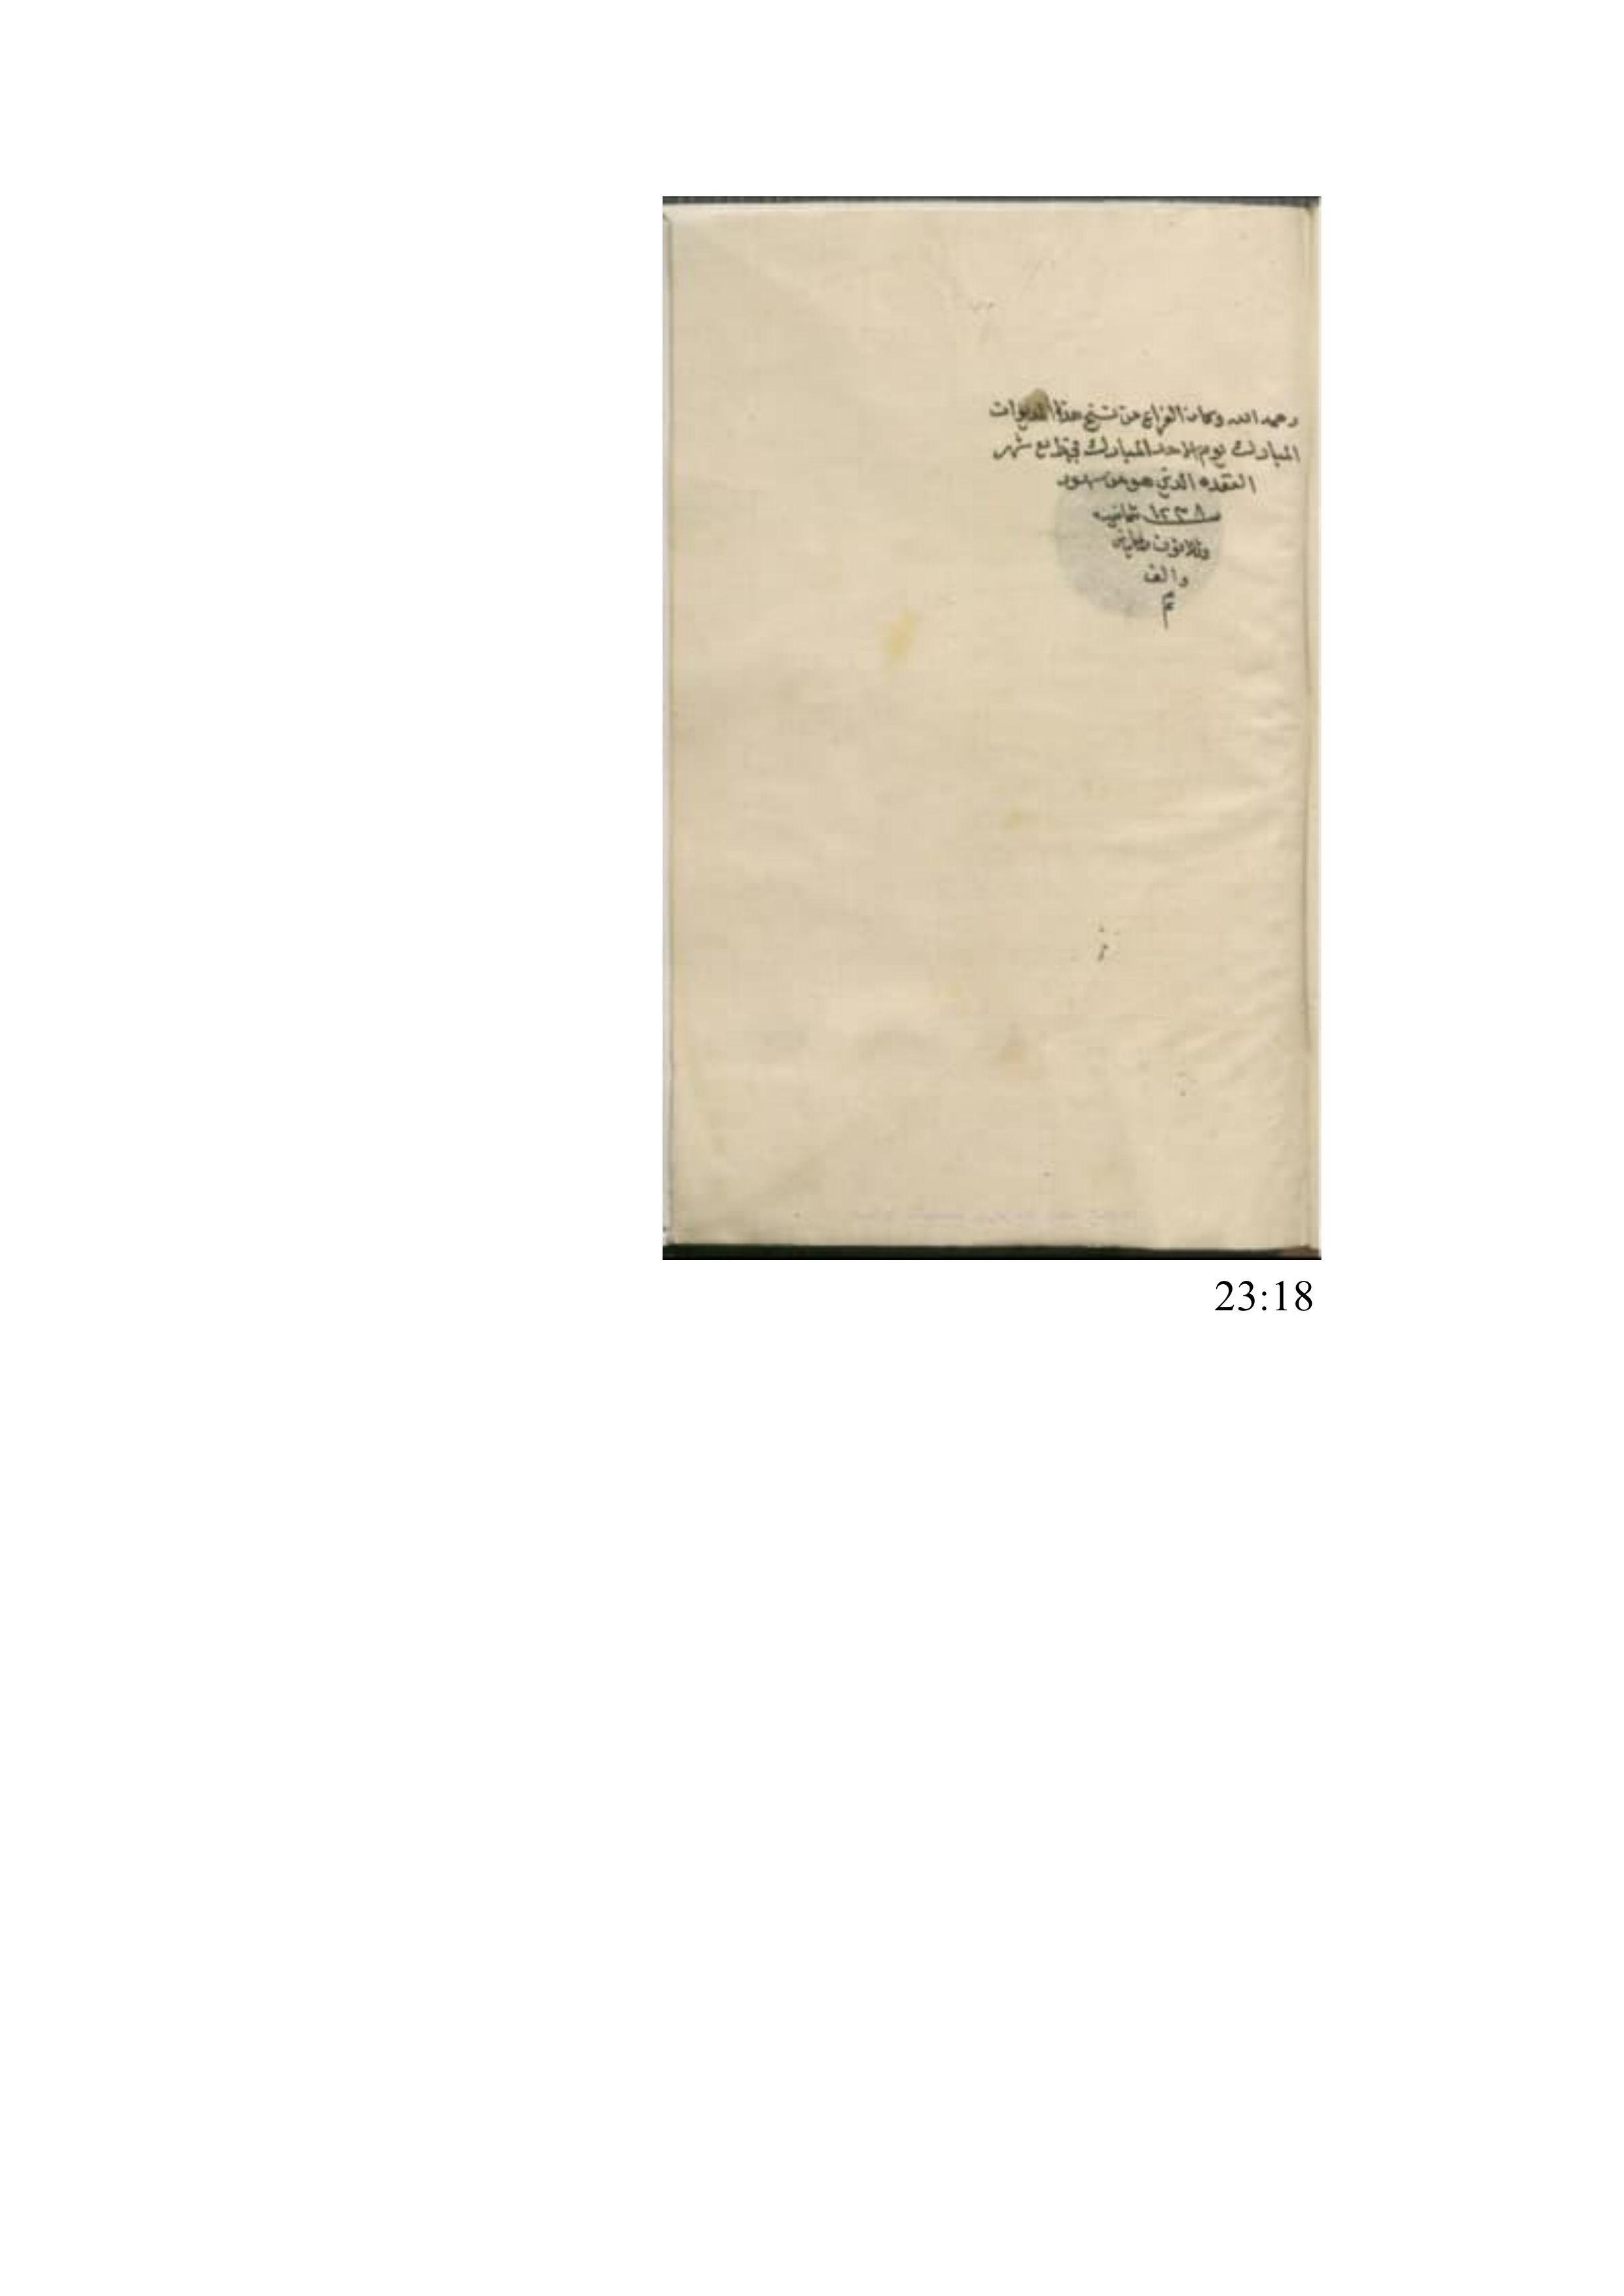 رحمه الله وكان الفراغ من نسخ هذا الديوان
المبارك يوم الاحد المبارك في رابع شهر
القعده الذي هو من شهور
سنة ١٢٣٨ ثمانيه
وثلاثون ومايتن
والف
تم
23:18